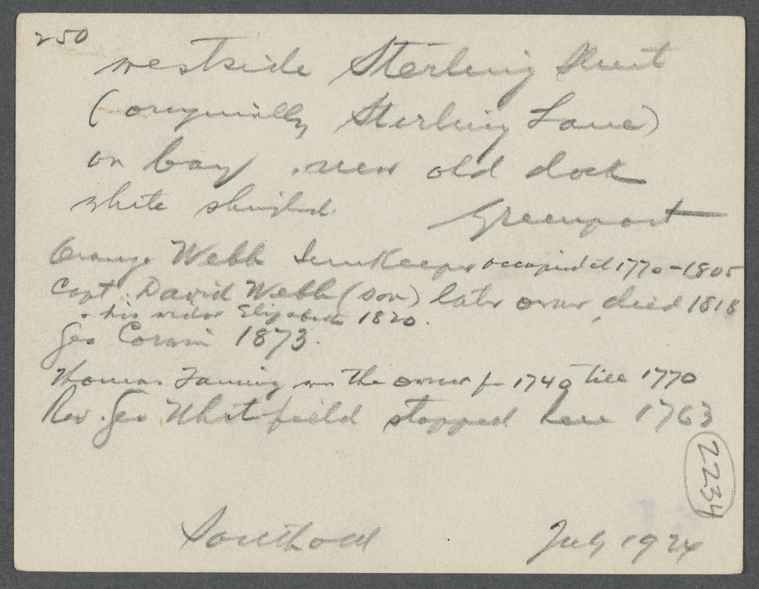 250
westside Sterling Street
(originally Sterling Lane)
on bay, near old dock
white shingled. Greenport
Orange Webb Innkeeper occupied it 1770-1805
Capt. David Webb (son) later owner, died 1818
& his widow Elizabeth 1820.
Geo Corwin 1873.
Thomas Fanning was the owner fr 1740 till 1770
Rev. Geo Whitfield stopped here 1763
2234
Southold July 1924